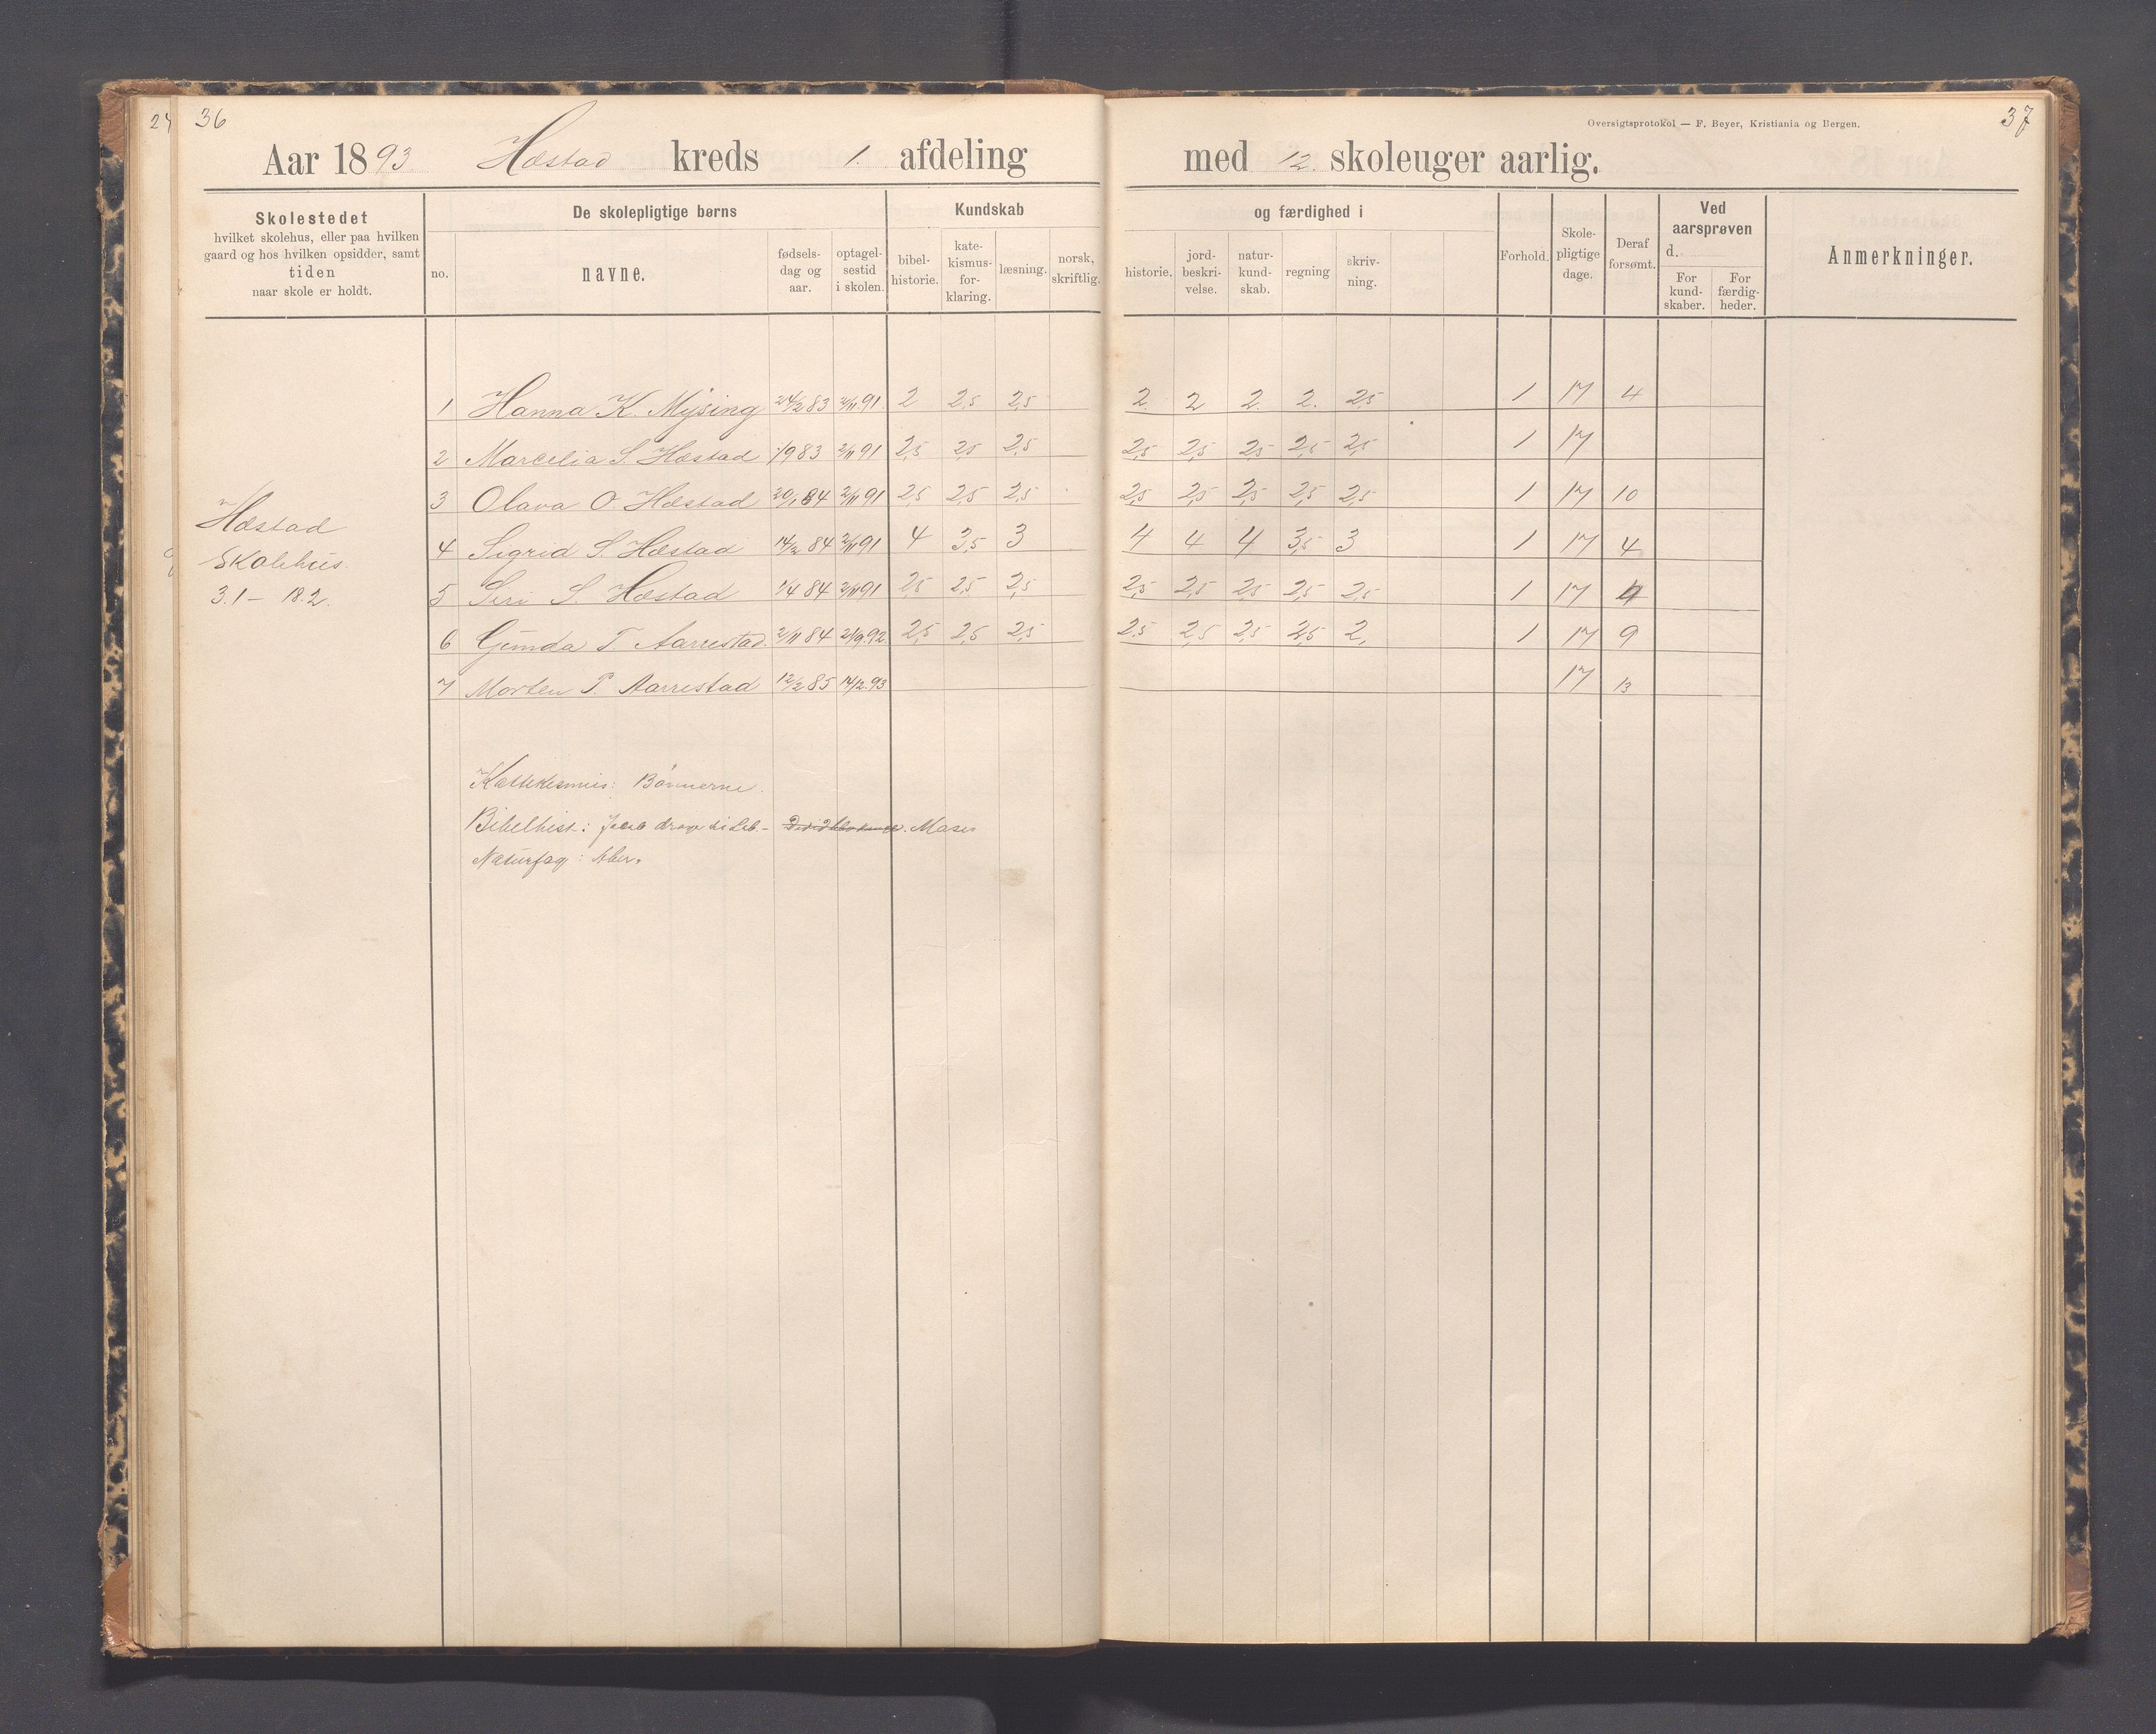 24 36
Aar 1893 Hæstad kreds 1. afdeling
Skolestedet
hvilket skolehus, eller paa hvilken
gaard og hos hvilken opsidder, samt
tiden
naar skole er holdt.
De skolepligtige børns
no. navne. fødsels-dag og aar. optagel-sestid i skolen.
Kundskab
bibel-historie. kate-kismus-for-klaring. læsning. norsk, skriftlig.
1 Hanna K. Mysing 24/2 83 2/11 91 2 2,5 2,5
2 Marcelia S. Hæstad 1/9 83 2/11 91 2,5 2,5 2,5
3 Olava O. Hæstad 20/1 84 2/11 91 2,5 2,5 2,5
4 Sigrid S. Hæstad 14/2 84 2/11 91 4 3,5 3
5 Siri S. Hæstad 1/4 84 2/11 91 2,5 2,5 2,5
6 Gunda T. Aarrestad. 2/11 84 21/9.92. 2,5 2,5 2,5
7 Morten P. Aarrestad 12/2 85 14/2.93
Hæstad
Skolehus.
3.1 – 18.2.
Kattekesmus: Bönnerne.
Bibelhist.: Jacob drage til Lab. – Moses
Naturfag: Aber.
Oversigtsprotokol — F. Beyer, Kristiania og Bergen.
37
med 12. skoleuger aarlig.
og færdighed i
historie. jord-beskri-velse. natur-kund-skab. regning skriv-ning.
Forhold. Skole-pligtige dage. Deraf forsømt.
Ved aarsprøven
d.
For kund-skaber. For færdig-heder.
Anmerkninger.
2. 2 2. 2. 2,5 1 17 4
2,5 2,5 2,5 2,5 2,5 1 17
2,5 2,5 2,5 2,5 2,5 1 17 10
4 4 4 3,5 3 1 17 4
2,5 2,5 2,5 2,5 2,5 1 17 4
2,5 2,5 2,5 2,5 2, 1 17 9
17 13